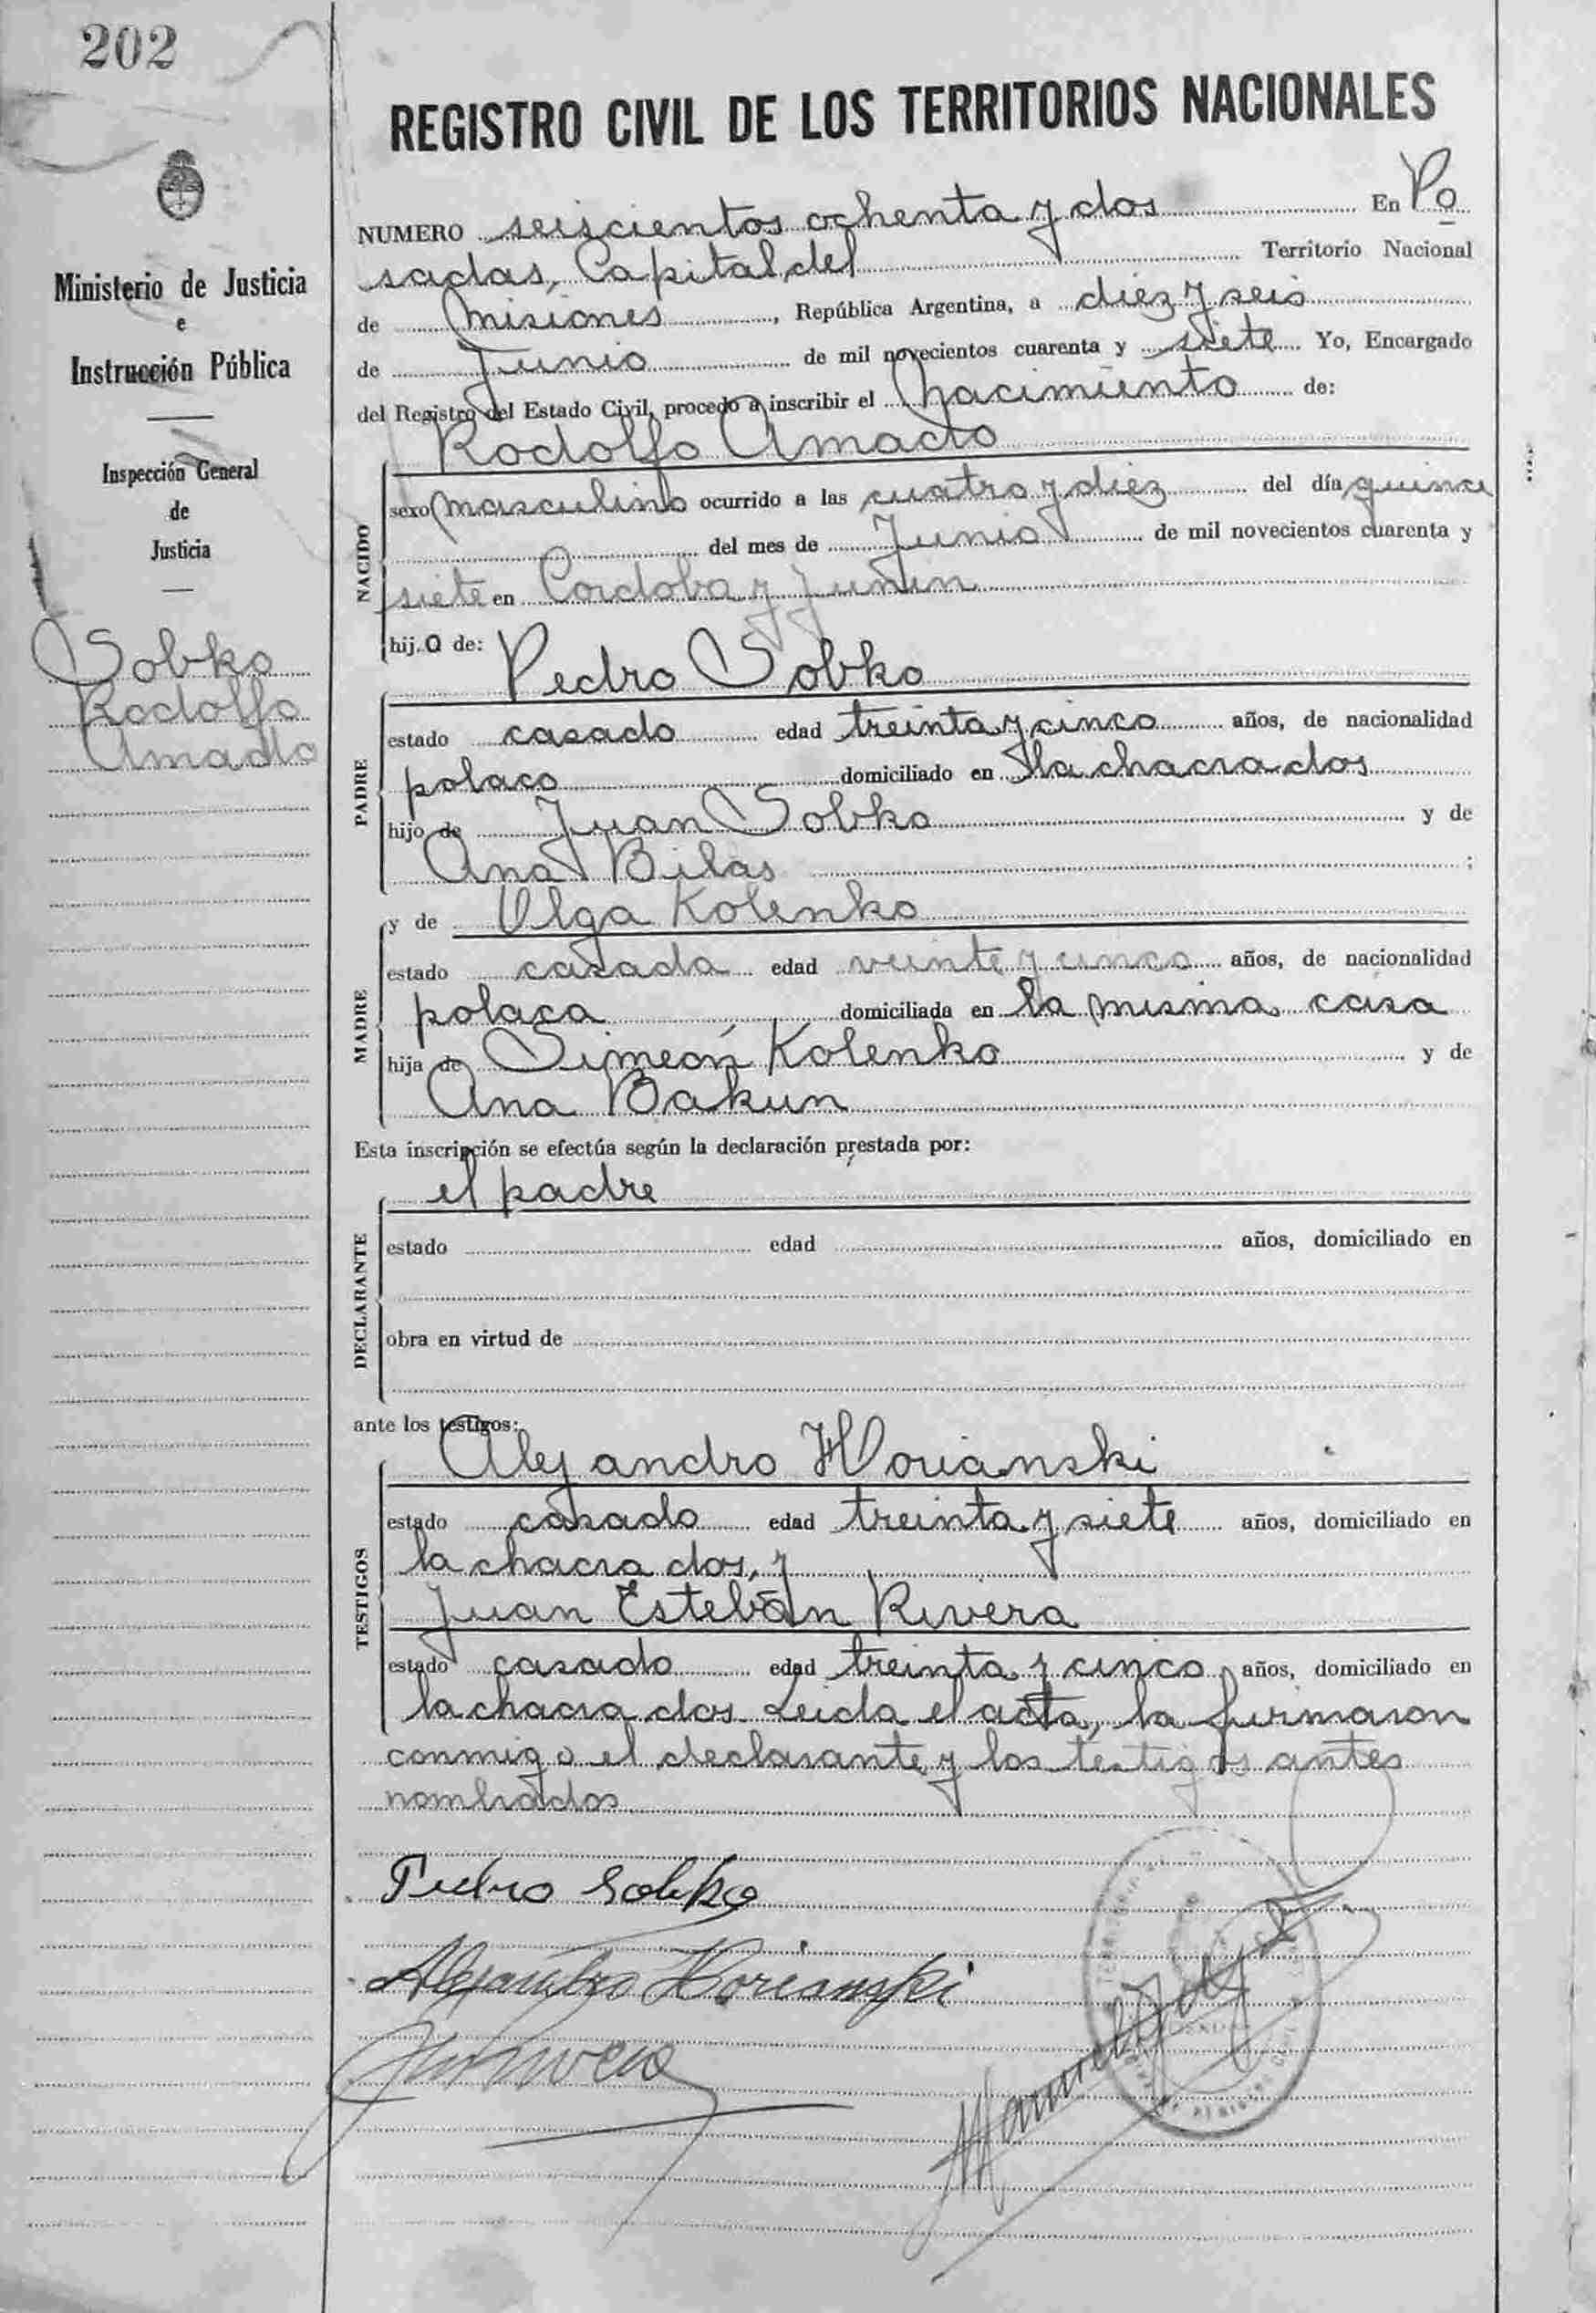 202
Ministerio de Justicia
e
Instrucción Pública
Inspección General
de
Justicia
Sobko
Rodolfo
Amado
REGISTRO CIVIL DE LOS TERRITORIOS NACIONALES
NUMERO seiscientos ochenta y dos En Po
sadas, Capital del Territorio Nacional
de Misiones, República Argentina, a diez y seis
de Junio de mil novecientos cuarenta y siete Yo, Encargado
del Registro del Estado Civil, procedo a inscribir el nacimiento de:
Rodolfo Amado
NACIDO
sexo masculino ocurrido a las cuatro y diez del día quince
del mes de Junio de mil novecientos cuarenta y
siete en Cordoba y Junin
hij.o de:
Pedro Sobko
PADRE
estado casado edad treinta y cinco años, de nacionalidad
polaco domiciliado en la chacra dos
hijo de Juan Sobko y de
Ana Bilas ;
y de Olga Kolenko
MADRE
estado casada edad veinte y cinco años, de nacionalidad
polaca domiciliada en la misma casa
hija de Simeón Kolenko y de
Ana Bakun
Esta inscripción se efectúa según la declaración prestada por:
el padre
DECLARANTE
estado edad años, domiciliado en
obra en virtud de
ante los testigos:
Alejandro Horianski
TESTIGOS
estado casado edad treinta y siete años, domiciliado en
la chacra dos, y
Juan Estebán Rivera
estado casado edad treinta y cinco años, domiciliado en
la chacra dos. Leida el acta, la firmaron
conmigo el declarante y los testigos antes
nombrados
Pedro Sobko
Alejandro Horianski